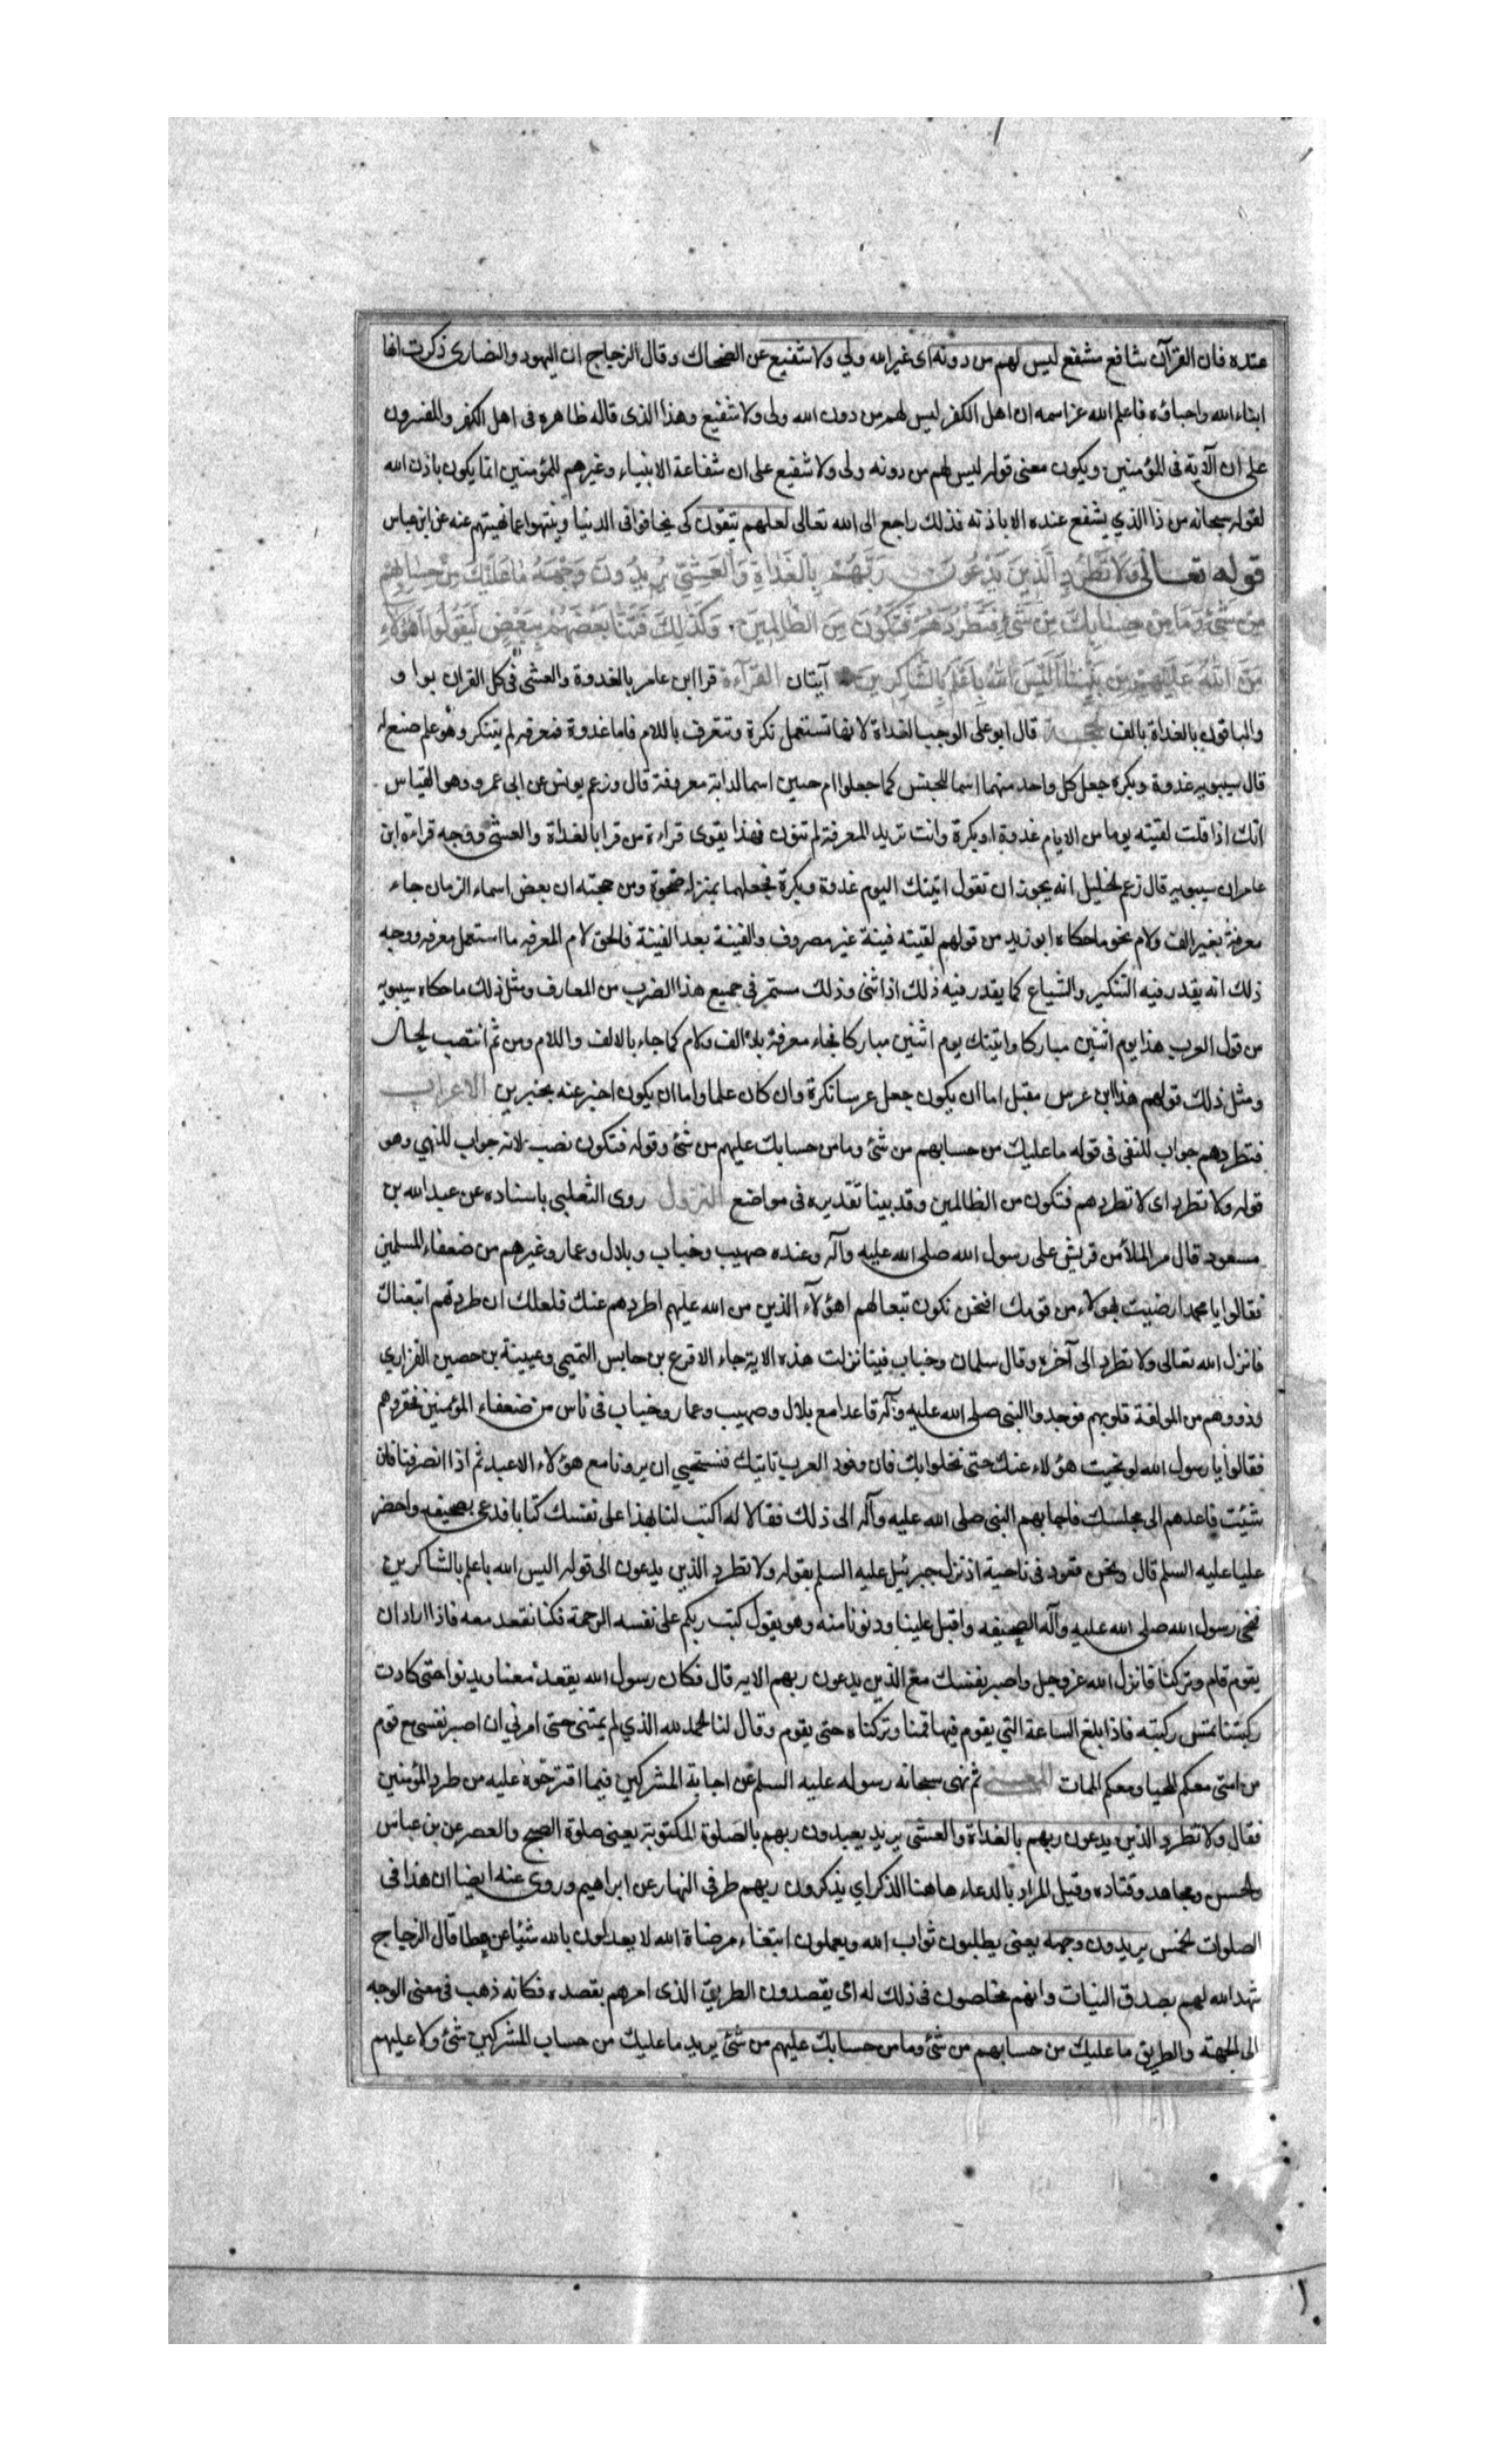 عنده فان القرآن شافع مشفع ليس لهم من دونه اى غير الله ولي ولا شفيع عن الضحاك وقال الزجاج ان اليهود والنصارى ذكرت انها
ابناء الله واحباؤه فاعلم الله عز اسمه ان اهل الكفر ليس لهم من دون الله ولى ولا شفيع وهذا الذى قاله ظاهره فى اهل الكفر والمفسرون
على ان الآية فى المؤمنين ويكون معنى قوله ليس لهم من دونه ولى ولا شفيع على ان شفاعة الانبياء وغيرهم للمؤمنين انما يكون باذن الله
لقوله سبحانه من ذا الذي يشفع عنده الا باذنه فذلك راجع الى الله تعالى لعلهم يتقون كى يخافوا فى الدنيا وينتهوا عما نهيتهم عنه عن ابن عباس
قوله تعالى ولا تطرد الذين يدعون ربهم بالغداة والعشي يريدون وجهه ما عليك من حسابهم
من شئ وما من حسابك عليهم من شئ فتطردهم فتكون من الظالمين وكذلك فتنا بعضهم ببعض ليقولوا اهؤلاء
من الله عليهم من بيننا اليس الله باعلم بالشاكرين آيتان القرآءة قرا ابن عامر بالغدوة والعشى فى كل القران بواو
والباقون بالغداة بالف الحجة قال ابو على الوجه الغداة لانها تستعمل نكرة وتتعرف باللام فاما غدوة فمعرفه لم يتنكر وهو علم صنع له
قال سيبويه غدوة وبكرة جعل كل واحد منهما اسما للجنس كما جعلوا ام حبين اسما لدابة معروفة قال وزعم يونس عن ابى عمرو وهو القياس
انك اذا قلت لقيته يوما من الايام غدوة او بكرة وانت تريد المعرفة لم تنون فهذا يقوى قراءة من قرا بالغداة والعشى ووجه قراءة ابن
عامر ان سيبويه قال زعم الخليل انه يجوز ان تقول اتيتك اليوم غدوة وبكرة فجعلهما بمنزله ضحوة ومن حجته ان بعض اسماء الزمان جاء
معرفة بغير الف ولام نحو ما حكاه ابو زيد من قولهم لقيته فينة غير مصروف والفينة بعد الفينة فالحق لام المعرفه ما استعمل معرفه ووجه
ذلك انه يقدر فيه التنكير والشياع كما يقدر فيه ذلك اذا ثنى وذلك مستمر فى جميع هذا الضرب من المعارف ومثل ذلك ما حكاه سيبويه
من قول العرب هذا يوم اثنين مباركا واتيتك يوم اثنين مباركا فجاء معرفة بلا الف ولام كما جاء بالالف واللام ومن ثم انتصب الحال
ومثل ذلك قولهم هذا ابن عرس مقبل اما ان يكون جعل عرسا نكرة وان كان علما واما ان يكون اخبر عنه بخبرين الاعراب
فتطردهم جواب للنفى فى قوله ما عليك من حسابهم من شئ وما من حسابك عليهم من شئ وقوله فتكون نصب لانه جواب للنهي وهو
قوله ولا تطرد اى لا تطردهم فتكون من الظالمين وقد بينا تقديره فى مواضع النزول روى الثعلبى باسناده عن عبد الله بن
مسعود قال مر الملأ من قريش على رسول الله صلى الله عليه وآله وعنده صهيب وخباب وبلال وعمار وغيرهم من ضعفاء المسلمين
فقالوا يا محمد ارضيت بهولاء من قومك افنحن نكون تبعا لهم اهؤلآء الذين من الله عليهم اطردهم عنك فلعلك ان طردتهم اتبعناك
فانزل الله تعالى ولا تطرد الى آخره وقال سلمان وخباب فينا نزلت هذه الاية جاء الاقرع بن حابس التميمي وعيينة بن حصين الفزاري
وذووهم من المولفة قلوبهم فوجدوا النبى صلى الله عليه وآله قاعدا مع بلال وصهيب وعمار وخباب فى ناس من ضعفاء المؤمنين فحقروهم
فقالوا يا رسول الله لو نحيت هؤلاء عنك حتى نخلوا بك فان وفود العرب تاتيك فنستحيي ان يرونا مع هؤلاء الاعبد ثم اذا انصرفنا فان
شئت فاعدهم الى مجلسك فاجابهم النبى صلى الله عليه وآله الى ذلك فقالا له اكتب لنا بهذا على نفسك كتابا فدعى بصحيفه واحضر
عليا عليه السلم قال ونحن قعود فى ناحية اذ نزل جبرئيل عليه السلم بقوله ولا تطرد الذين يدعون الى قوله اليس الله باعلم بالشاكرين
فنحى رسول الله صلى الله عليه وآله الصحيفه واقبل علينا ودنونا منه وهو يقول كتب ربكم على نفسه الرحمة فكنا نقعد معه فاذا اراد ان
يقوم قام وتركنا فانزل الله عز وجل واصبر نفسك مع الذين يدعون ربهم الايه قال فكان رسول الله يقعد معنا ويدنوا حتى كادت
ركبتنا تمس ركبته فاذا بلغ الساعة التي يقوم فيها قمنا وتركناه حتى يقوم وقال لنا الحمد لله الذي لم يمتنى حتى امرني ان اصبر نفسى مع قوم
من امتى معكم المحيا ومعكم الممات المعنى ثم نهى سبحانه رسوله عليه السلم عن اجابة المشركين فيما اقترحوه عليه من طرد المؤمنين
فقال ولا تطرد الذين يدعون ربهم بالغداة والعشى يريد يعبدون ربهم بالصلوة المكتوبة يعنى صلوة الصبح والعصر عن بن عباس
والحسن ومجاهد وقتاده وقيل المراد بالدعاء هاهنا الذكر اي يذكرون ربهم طرفى النهار عن ابراهيم وروى عنه ايضا ان هذا فى
الصلوات الخمس يريدون وجهه يعنى يطلبون ثواب الله ويعملون ابتغاء مرضاة الله لا يعدلون بالله شيئا عن عطا قال الزجاج
شهد الله لهم بصدق النيات وانهم مخلصون فى ذلك له اى يقصدون الطريق الذى امرهم بقصده فكانه ذهب فى معنى الوجه
الى الجهة والطريق ما عليك من حسابهم من شئ وما من حسابك عليهم من شئ يريد ما عليك من حساب المشركين شئ ولا عليهم